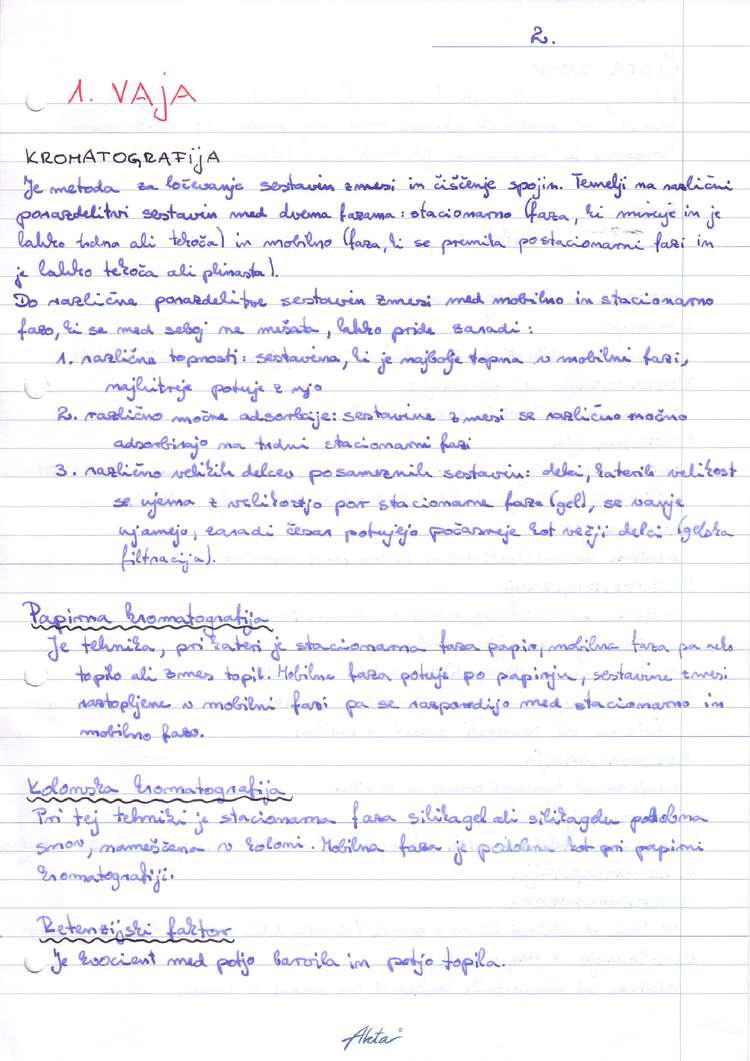 2.
1. VAJA
KROMATOGRAFIJA
Je metoda za ločevanje sestavin zmesi in čiščenje spojin. Temelji na različni
porazdelitvi sestavin med dvema fazama: stacionarno (faza, ki miruje in je
lahko trdna ali tekoča) in mobilno (faza, ki se premika po stacionarni fazi in
je lahko tekoča ali plinasta).
Do različne porazdelitve sestavin zmesi med mobilno in stacionarno
fazo, ki se med seboj ne mešata, lahko pride zaradi:
1. različne topnosti: sestavina, ki je najbolje topna v mobilni fazi,
najhitreje potuje z njo
2. različno močne adsorbcije: sestavine zmesi se različno močno
adsorbirajo na trdni stacionarni fazi
3. različno velikih delcev posameznih sestavin: delci, katerih velikost
se ujema z velikostjo por stacionarne faze (gel), se vanje
ujamejo, zaradi česar potujejo počasneje kot večji delci (gelska
filtracija).
Papirna kromatografija
Je tehnika, pri kateri je stacionarna faza papir, mobilna faza pa neko
topilo ali zmes topil. Mobilna faza potuje po papirju, sestavine zmesi
raztopljene v mobilni fazi pa se razporedijo med stacionarno in
mobilno fazo.
Kolonska kromatografija
Pri tej tehniki je stacionarna faza silikagel ali silikagelu podobna
snov, nameščena v koloni. Mobilna faza je podobna kot pri papirni
kromatografiji.
Retenzijski faktor
Je kvocient med potjo barvila in potjo topila.
Akta